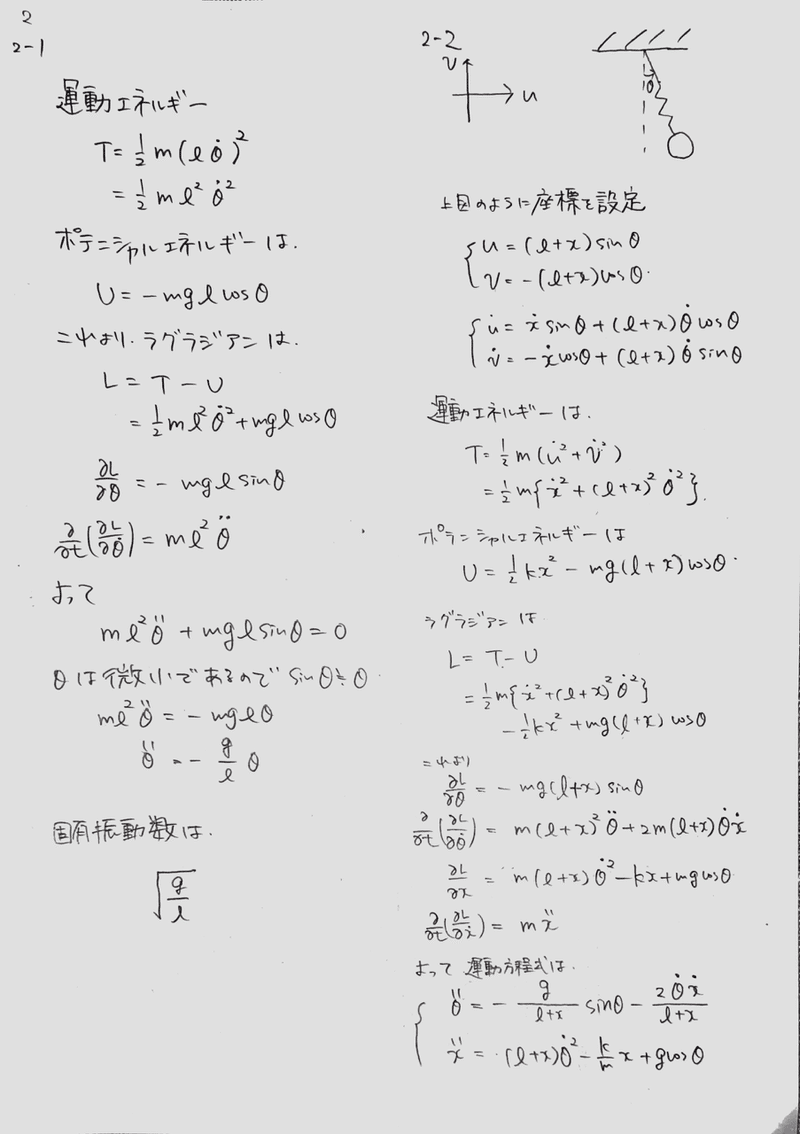 2
2-1
運動エネルギー
T = 1/2 m(lθ̇)²
= 1/2 m l² θ̇²
ポテンシャルエネルギーは.
U = -mgl cosθ
これより. ラグラジアンは.
L = T - U
= 1/2 m l² θ̇² + mgl cosθ
∂L/∂θ = - mgl sinθ
∂/∂t(∂L/∂θ̇) = m l² θ̈
よって
m l² θ̈ + mgl sinθ = 0
θは微小であるので sinθ≒θ
m l² θ̈ = - mglθ
θ̈ = - g/l θ
固有振動数は.
√(g/l)
2-2
v
u
θ
上図のように座標を設定
{ u = (l+x) sinθ
v = -(l+x) cosθ.
{ u̇ = ẋ sinθ + (l+x) θ̇ cosθ
v̇ = -ẋ cosθ + (l+x) θ̇ sinθ
運動エネルギーは.
T = 1/2 m(u̇² + v̇²)
= 1/2 m{ẋ² + (l+x)² θ̇²}.
ポテンシャルエネルギーは
U = 1/2 kx² - mg(l+x) cosθ.
ラグラジアンは
L = T - U
= 1/2 m{ẋ² + (l+x)² θ̇²}
- 1/2 kx² + mg(l+x) cosθ
これより
∂L/∂θ = - mg(l+x) sinθ
∂/∂t(∂L/∂θ̇) = m(l+x)² θ̈ + 2m(l+x) θ̇ẋ
∂L/∂x = m(l+x) θ̇² - kx + mg cosθ
∂/∂t(∂L/∂ẋ) = mẍ
よって 運動方程式は.
{ θ̈ = - g/(l+x) sinθ - 2θ̇ẋ/(l+x)
ẍ = (l+x)θ̇² - k/m x + g cosθ